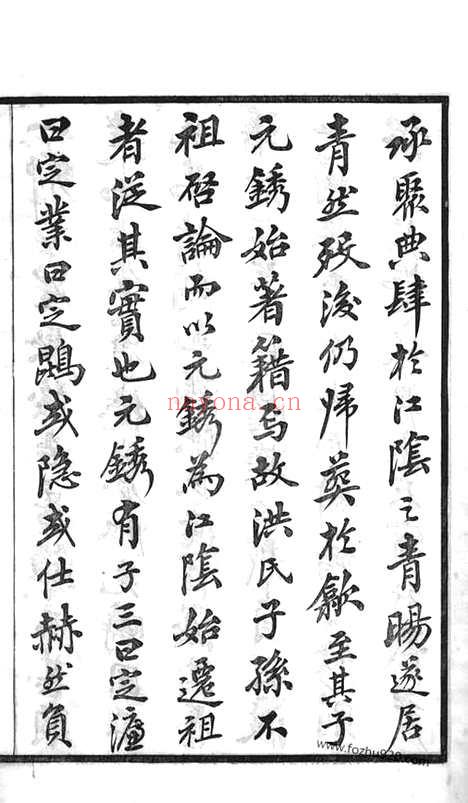 承聚典肆於江陰之青暘遂居
青然歿後仍歸葬於歙至其子
元銹始著籍焉故洪氏子孫不
祖啓論而以元銹為江陰始遷祖
者從其實也元銹有子三曰定濂
曰定業曰定鵾或隐或仕赫然負
nayona.cn
www.fozhu920.com